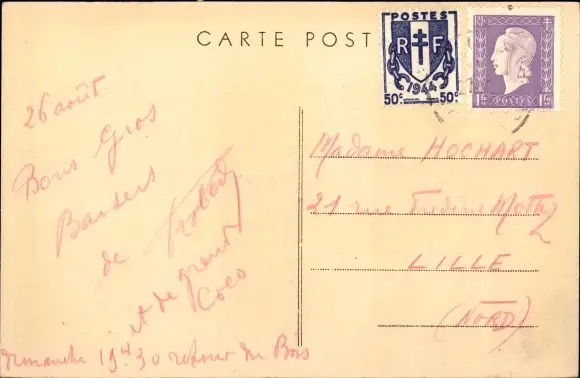 CARTE POST
POSTES
RF
1944
50c 50c
RF
1F POSTES 1F
26 août
Bons Gros
Baisers
de
et de
Coco
dimanche 19h30 retour du Bois
Madame HOCHART
21 rue
LILLE
(NORD)